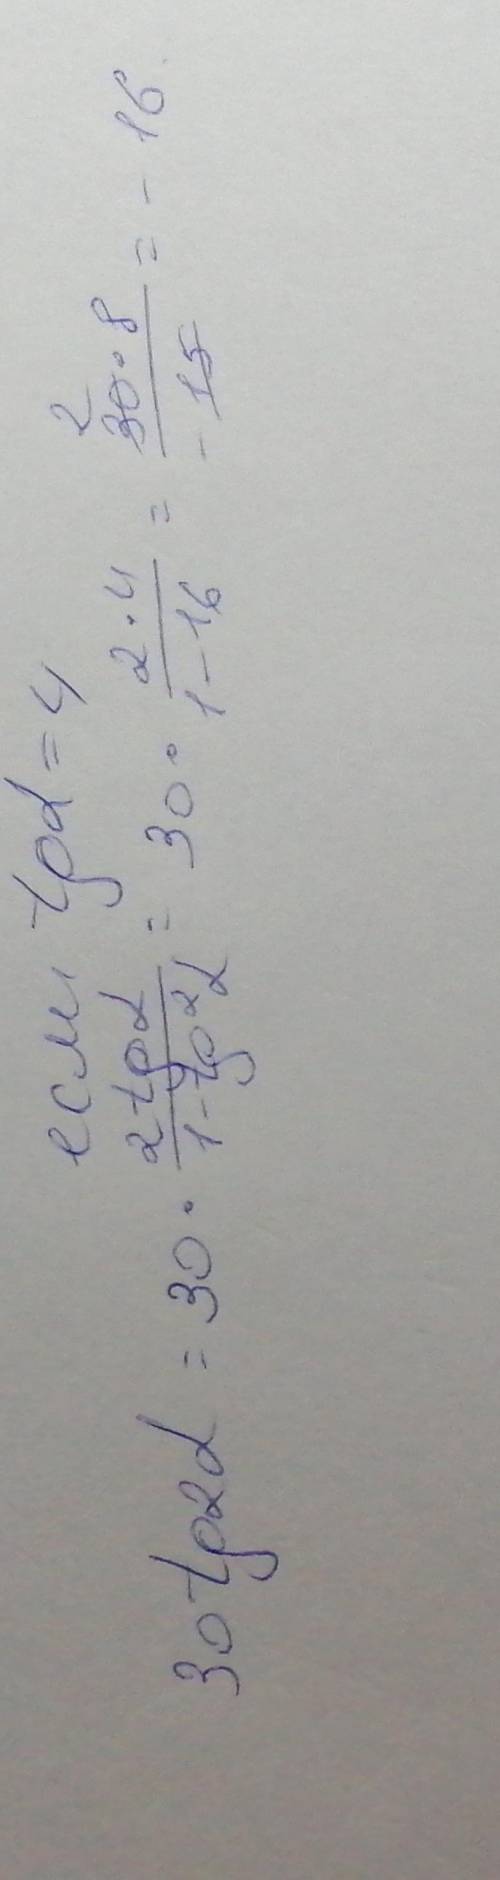 если tgα = 4
30 tg2α = 30 · \frac{2tgα}{1-tg²α} = 30 · \frac{2·4}{1-16} = \frac{\overset{2}{30}·8}{-15} = -16